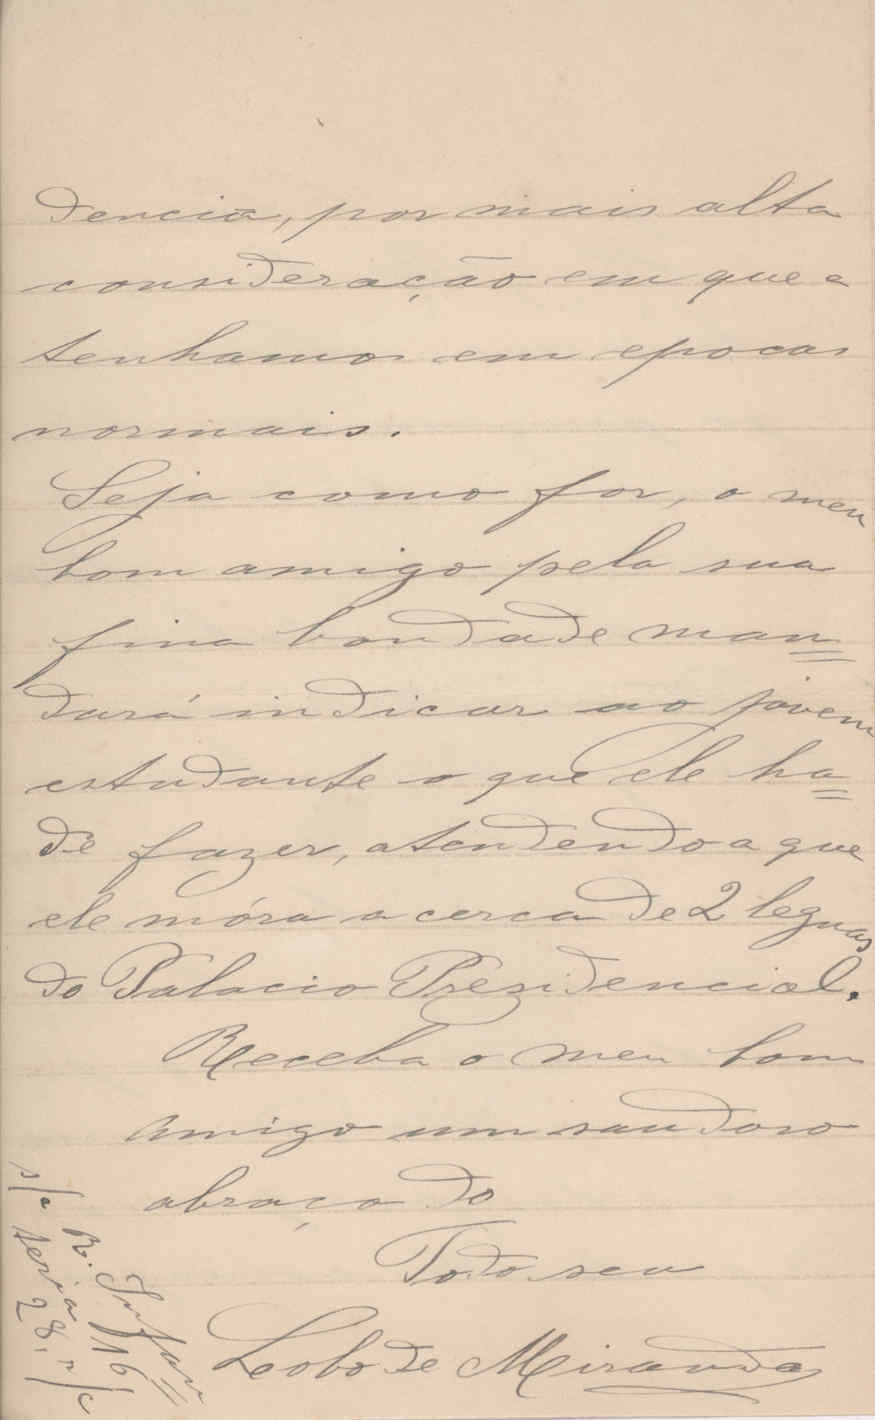 dencia, por mais alta
consideração em que a
tenhamos em epocas
normais.
Seja como for, o meu
bom amigo pela sua
fina bondade man=
dará indicar ao jovem
estudante o que ele ha=
de fazer, atendendo a que
ele móra a cerca de 2 leguas
do Palacio Prezidencial.
Receba o meu bom
amigo um saudoso
abraço do
Todo seu
Lobo de Miranda
s/c R. Infan=
teria 16,
28, r/c